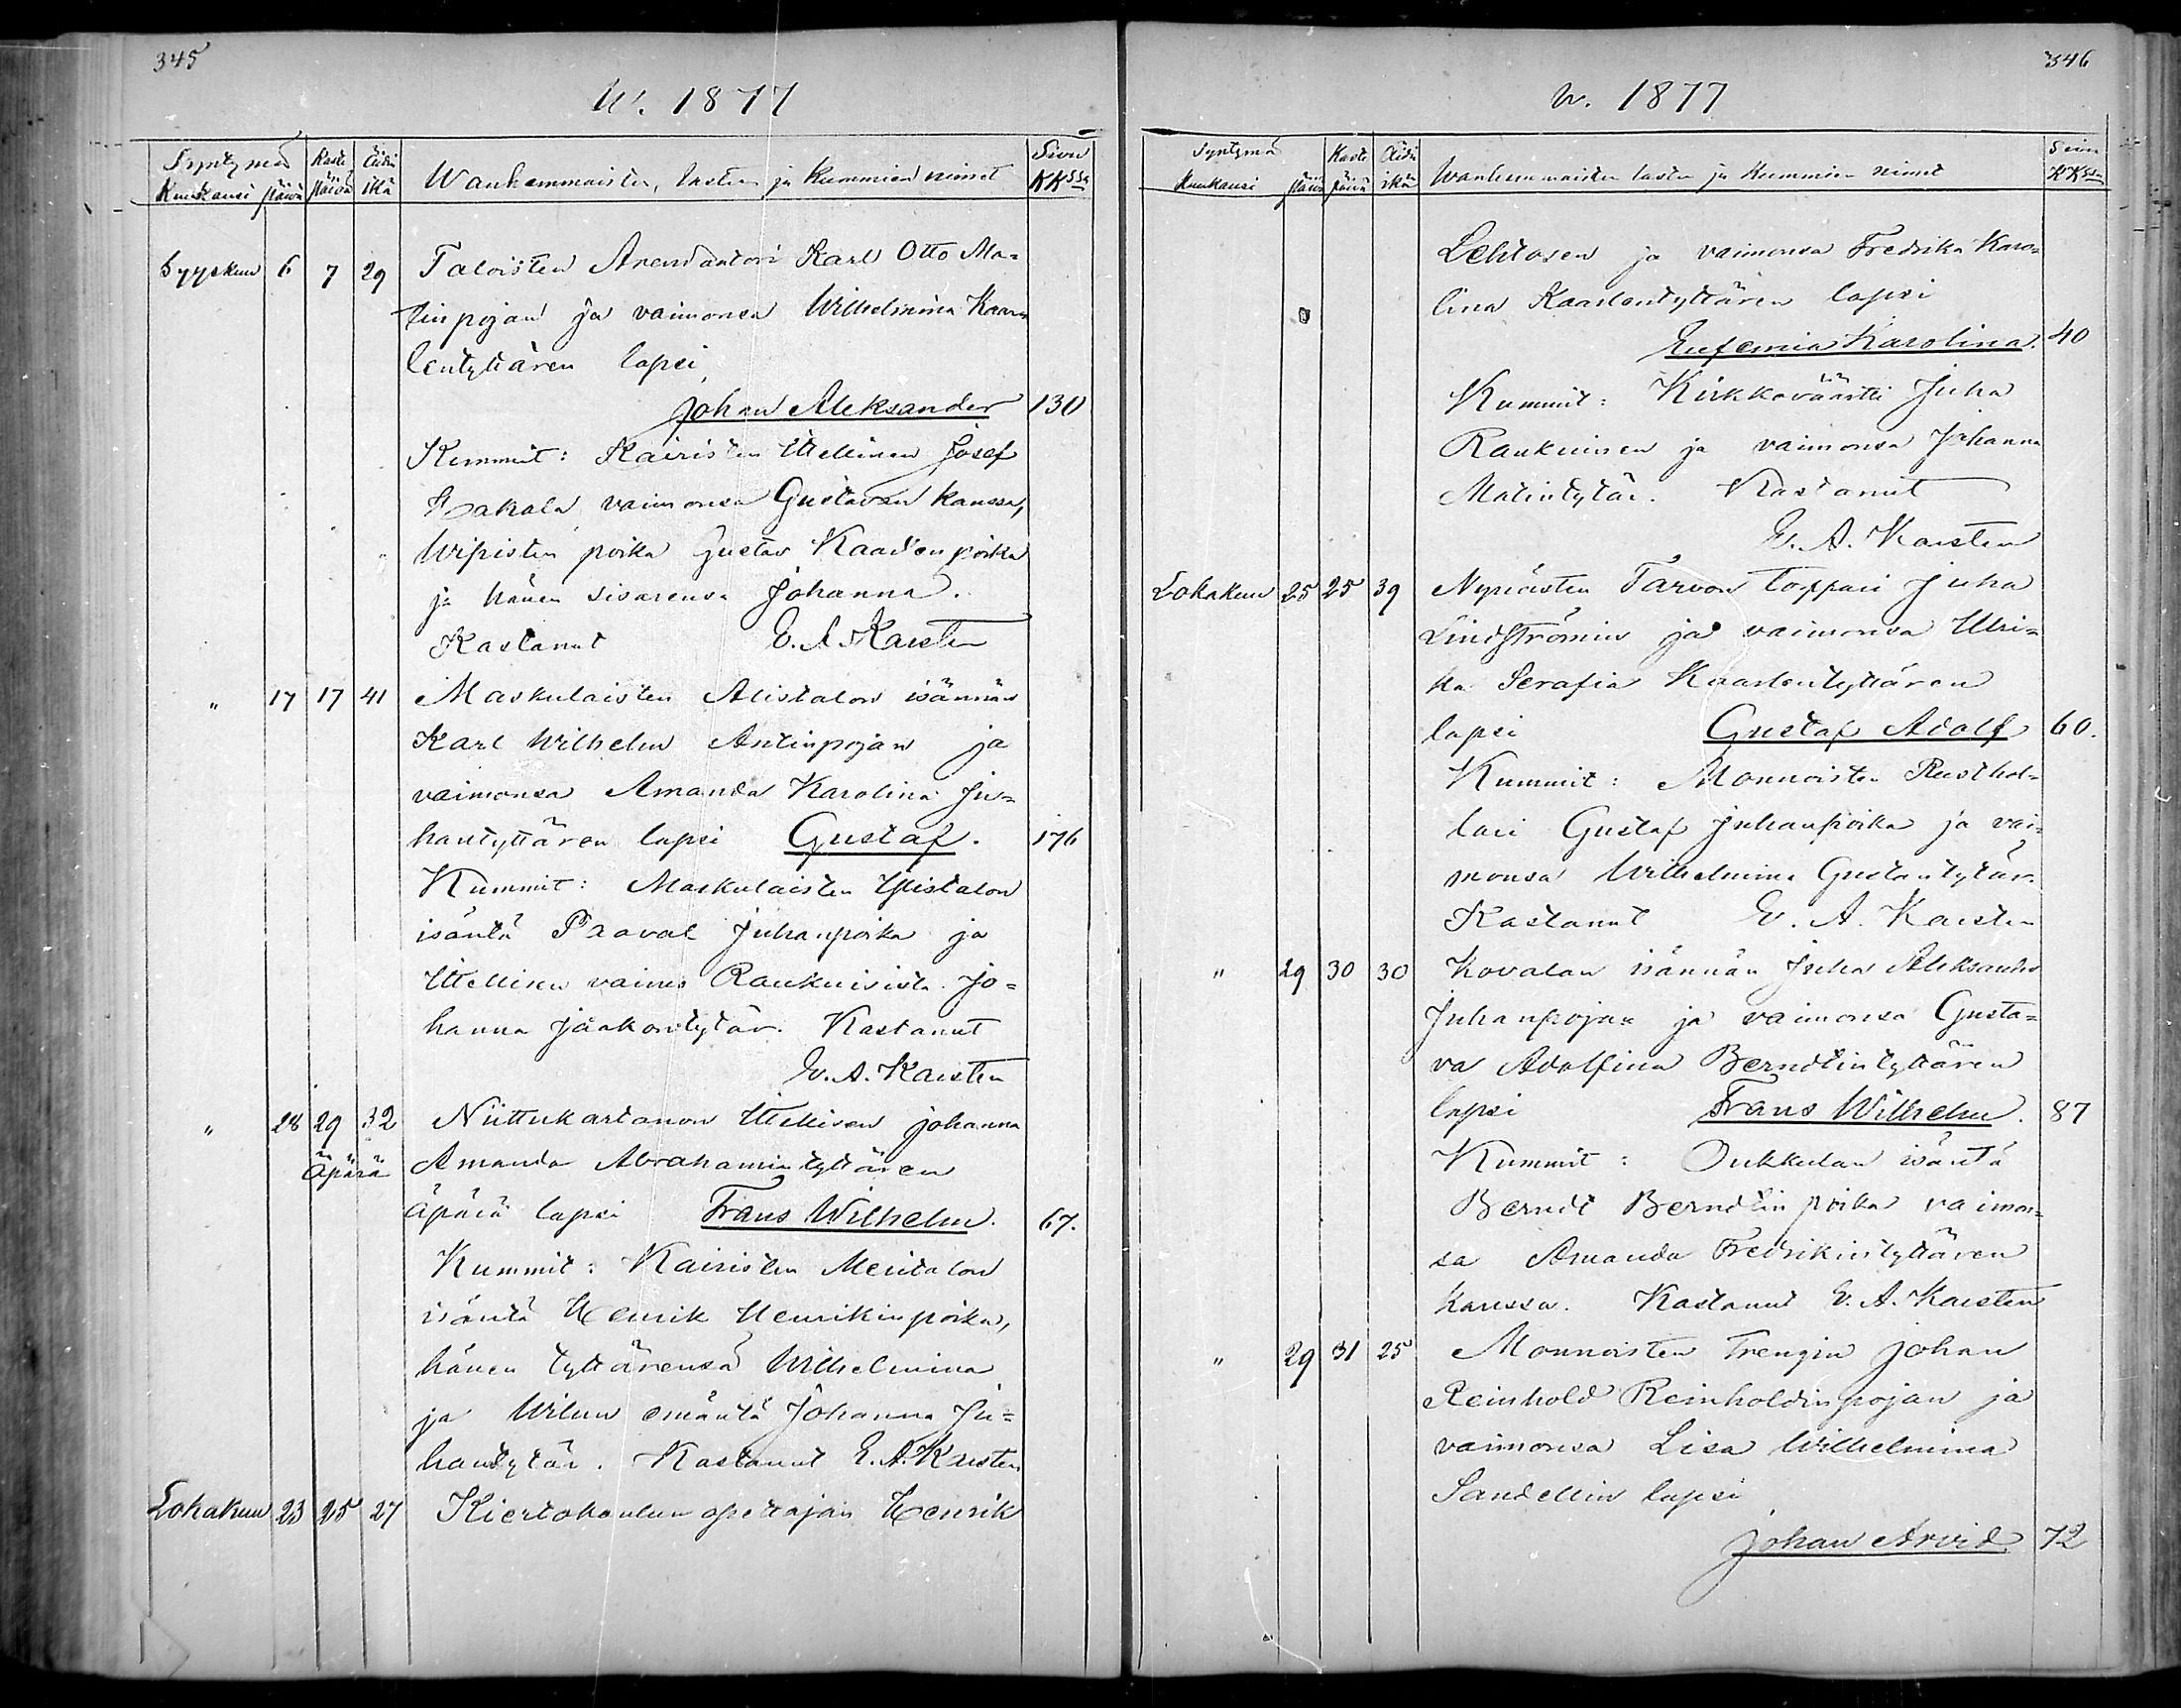 345
W. 1877
Syntymä Kaste Äidin Wanhemmaisten, lasten ja Kummien nimet Sivu
Kuukausi päivä päivä ikä KKssa
Syyskuu 6 7 29 Taloisten Arendantori Karl Otto Ma-
tinpojan ja vaimonsa Wilhelmina Kaar
lentyttären lapsi,
Johan Aleksander 130
Kummit: Kairisten Itellinen Josef
Hakala vaimonsa Gustavan kanssa,
Wipisten poika Gustav Kaarlonpoika
ja hänen sisarensa Johanna.
Kastanut E. A. Karsten
" 17 17 41 Maskulaisten Alistalon isännän
Karl Wilhelm Antinpojan ja
vaimonsa Amanda Karolina Ju-
hantyttären lapsi Gustaf. 176
Kummit: Maskulaisten Ylistalon
isäntä Paaval Juhanpoika ja
Itellisen vaimo Raukuisista Jo-
hanna Jaakontytär. Kastanut
E. A. Karsten
" 28 29 32 Niittukartanon Itellisen Johanna
Äpärä Amanda Abrahamintyttären
äpärä lapsi Frans Wilhelm. 67.
Kummit: Kairisten Meritalon
isäntä Henrik Henrikinpoika,
hänen tyttärensä Wilhelmina
ja Wilun emäntä Johanna Ju-
hantytär. Kastanut E. A. Karsten
Lokakuu 23 25 27 Kiertokoulun opettajan Henrik
346
w. 1877
Syntymä Kaste Äidin Wanhemmaisten lasten ja Kummien nimet Sivu
Kuukausi päivä päivä ikä KKssa
Lehtosen ja vaimonsa Fredrika Karo-
lina Kaarlontyttären lapsi
Eufemia Karolina. 40
Kummit: Kirkkoväärtti Juha
Raukuinen ja vaimonsa Johanna
Matintytär. Kastanut
E. A. Karsten
Lokakuu 25 25 39 Nynäisten Tarvon torppari Juha
Lindströmin ja vaimonsa Ulri-
ka Serafia Kaarlontyttären
lapsi Gustaf Adolf 60.
Kummit: Monnoisten Rusthol-
lari Gustaf Juhanpoika ja vai-
monsa Wilhelmina Gustantytär.
Kastanut E. A. Karsten
" 29 30 30 Kovalan isännän Juha Aleksander
Juhanpojan ja vaimonsa Gusta-
va Adolfina Berndtintyttären
lapsi Frans Wilhelm. 87
Kummit: Oukkulan isäntä
Berndt Berndtinpoika vaimon-
sa Amanda Fredrikintyttären
kanssa. Kastanut E. A. Karsten
" 29 31 25 Monnoisten Trengin Johan
Reinhold Reinholdinpojan ja
vaimonsa Lisa Wilhelmina
Sandellin lapsi
Johan Arvid 72